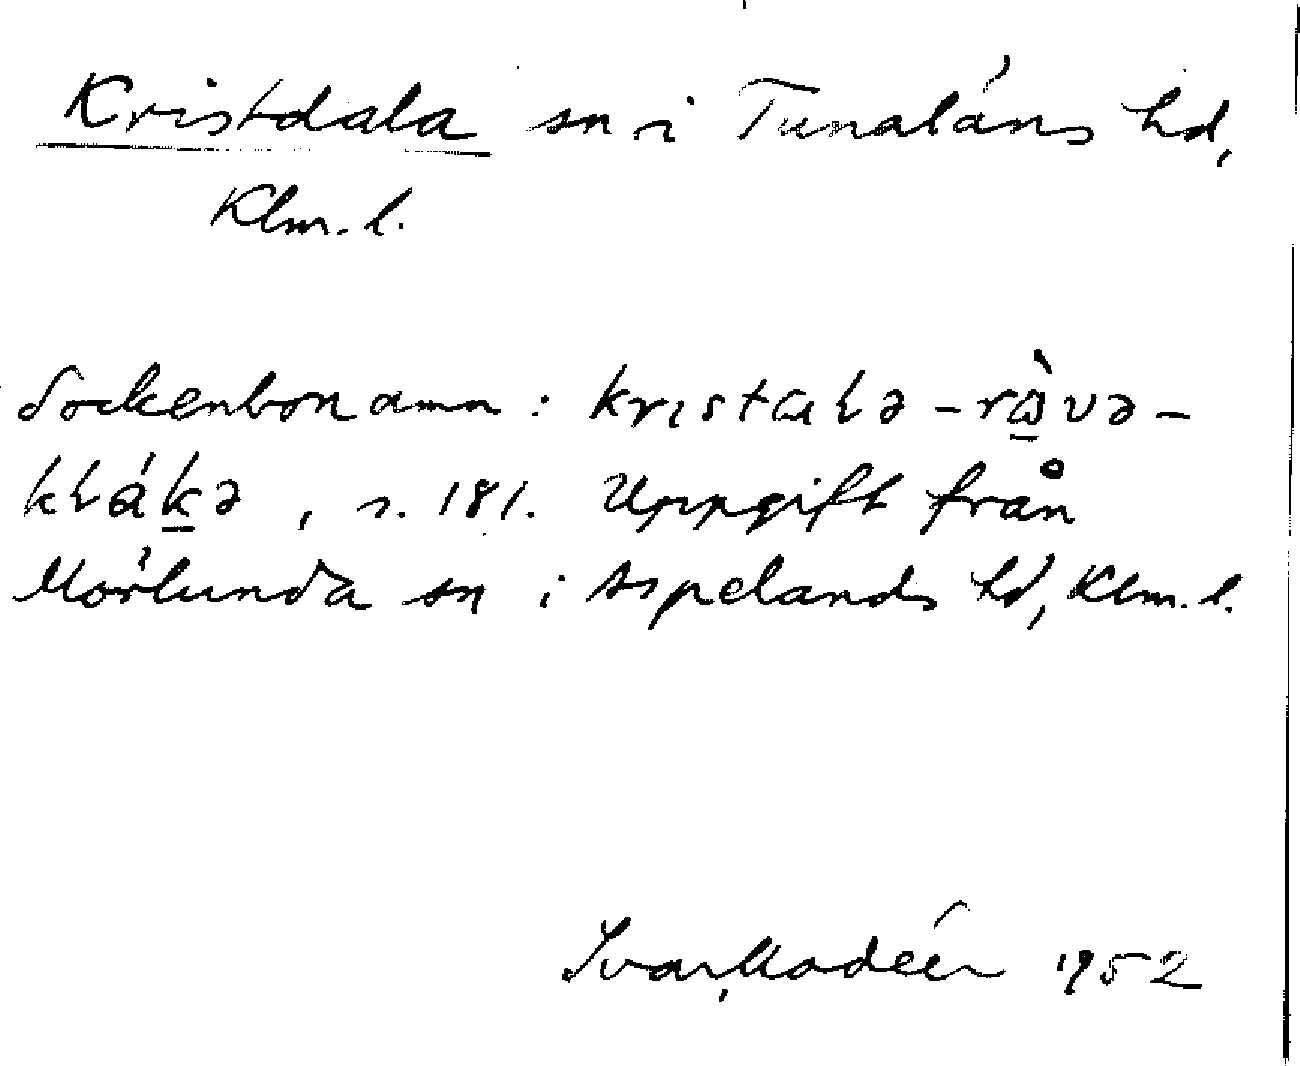 Kristdala sn i Tunaläns hd,
Klm. l.
Sockenbonamn: kristalə-ràvə-
klákə, s. 181. Uppgift från
Mörlunda sn i Aspelands hd, Klm. l.
Ivar Modéer 1952